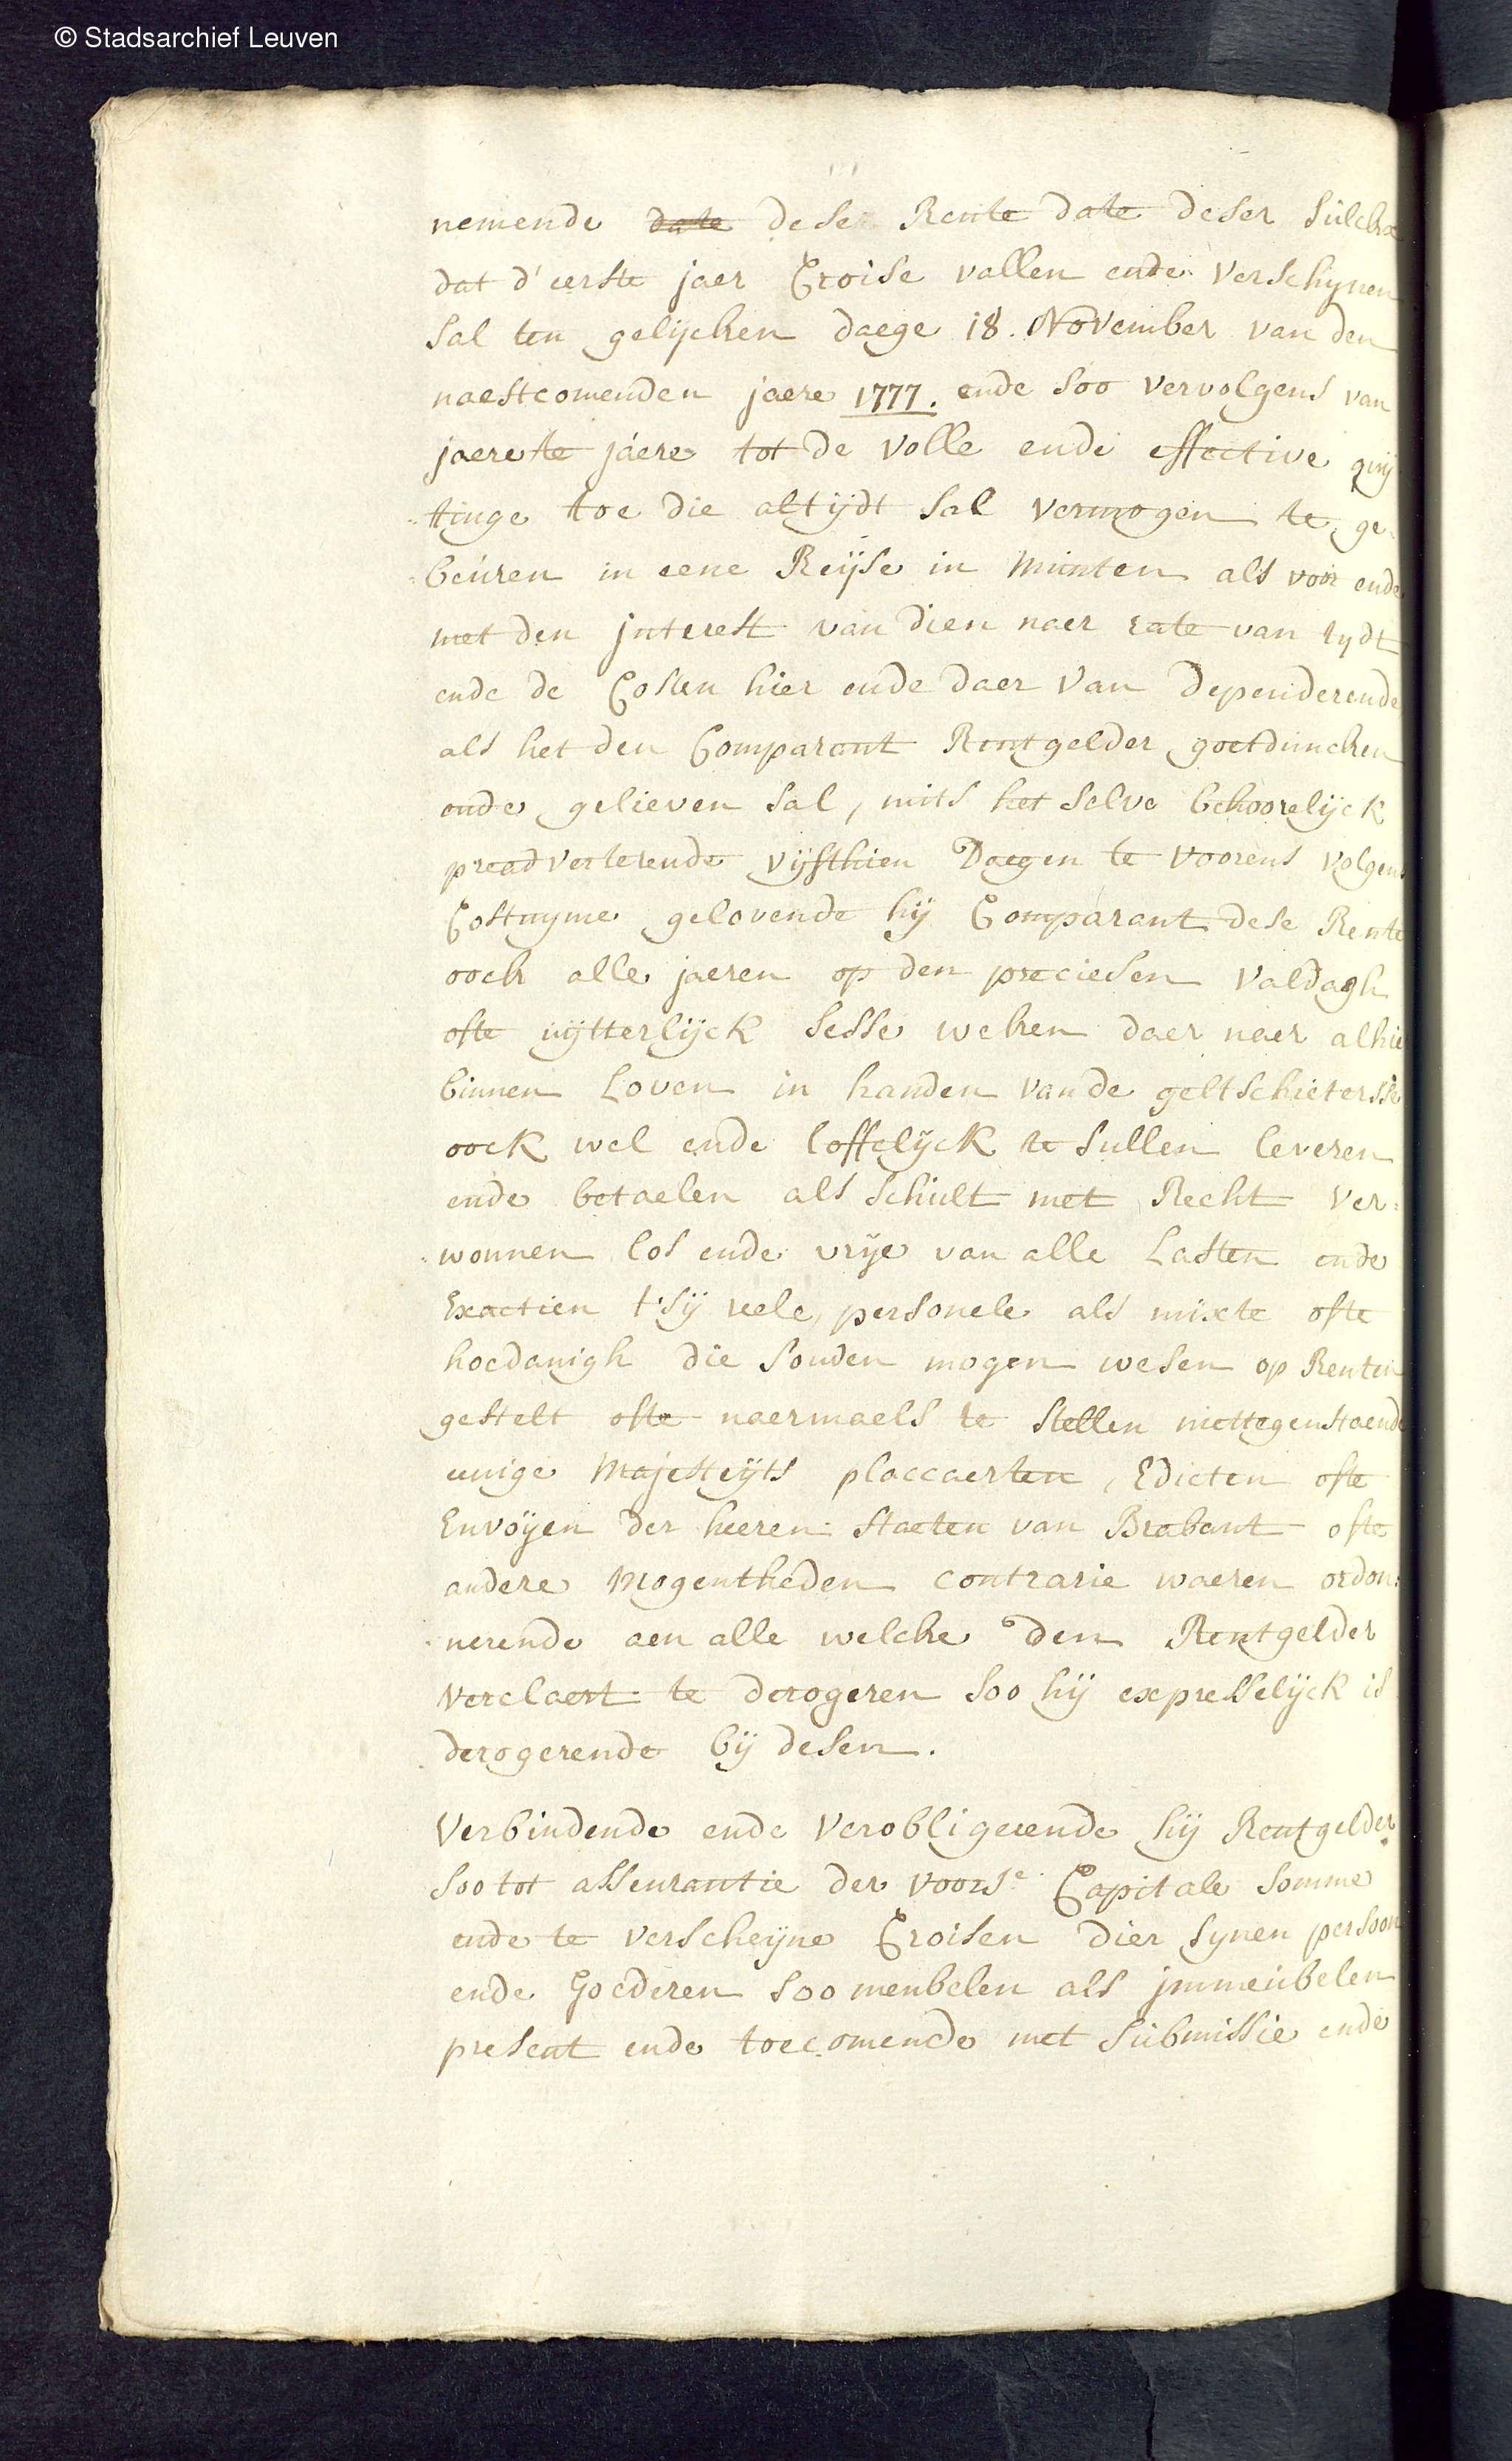 © Stadsarchief Leuven
nemende date dese Rente date deser sulckx
dat d'eerste jaer Croise vallen ende verschynen
sal ten gelijcken daege 18. November van den
naestcomenden jaere 1777. ende soo vervolgens van
jaere te jaere tot de volle ende effective quij
tinge toe die altijdt sal vermogen te ge-
beuren in eene Reijse in munten als voor ende
met den jnterest van dien naer rate van tydt
ende de Costen hier ende daer van dependerende
als het den Comparant Rentgelder goetduncken
ende gelieven sal, mits het selve behoorelijck
preadverterende vijfthien Daegen te voorens volgens
Costuyme gelovende hij Comparant dese Rente
oock alle jaeren op den preciesen valdagh
ofte uijtterlijck sesse weken daer naer alhie
binnen Loven in handen vande geltschietersse
oock wel ende loffelijck te sullen leveren
ende betaelen als schult met Recht ver=
wonnen los ende vrije van alle Lasten ende
Exactien t'sij reele, personele als mixte ofte
hoedanigh die souden mogen wesen op Renten
gestelt ofte naermaels te stellen niettegenstaende
eenige Majesteijts placcaerten, Edicten ofte
Envoijen der heeren Staeten van Brabant ofte
andere Mogentheden contrarie waeren ordon=
nerende aen alle welcke den Rentgelder
verclaert te derogeren soo hij expresselijck is
derogerende bij desen.
Verbindende ende verobligerende hij Rentgelder
soo tot asseurantie der voorse Capitale somme
ende te verscheijne Croisen dier synen persoon
ende Goederen soo meubelen als jmmeubelen
present ende toecomende met submissie ende